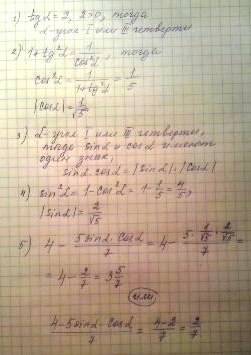 1) tg α = 2, 2>0, тогда
α - угол I или III четверти
2) 1 + tg²α = 1/cos²α, тогда
cos²α = 1/(1+tg²α) = 1/5
|cos α| = 1/√5
3) α - угол I или III четверти,
тогда sin α и cos α имеют
один знак,
sin α · cos α = |sin α| · |cos α|
4) sin²α = 1 - cos²α = 1 - 1/5 = 4/5,
|sin α| = 2/√5
5) 4 - (5 sin α · cos α)/7 = 4 - (5 · 1/√5 · 2/√5)/7 =
= 4 - 2/7 = 3 5/7
или
(4 - 5 sin α · cos α)/7 = (4-2)/7 = 2/7